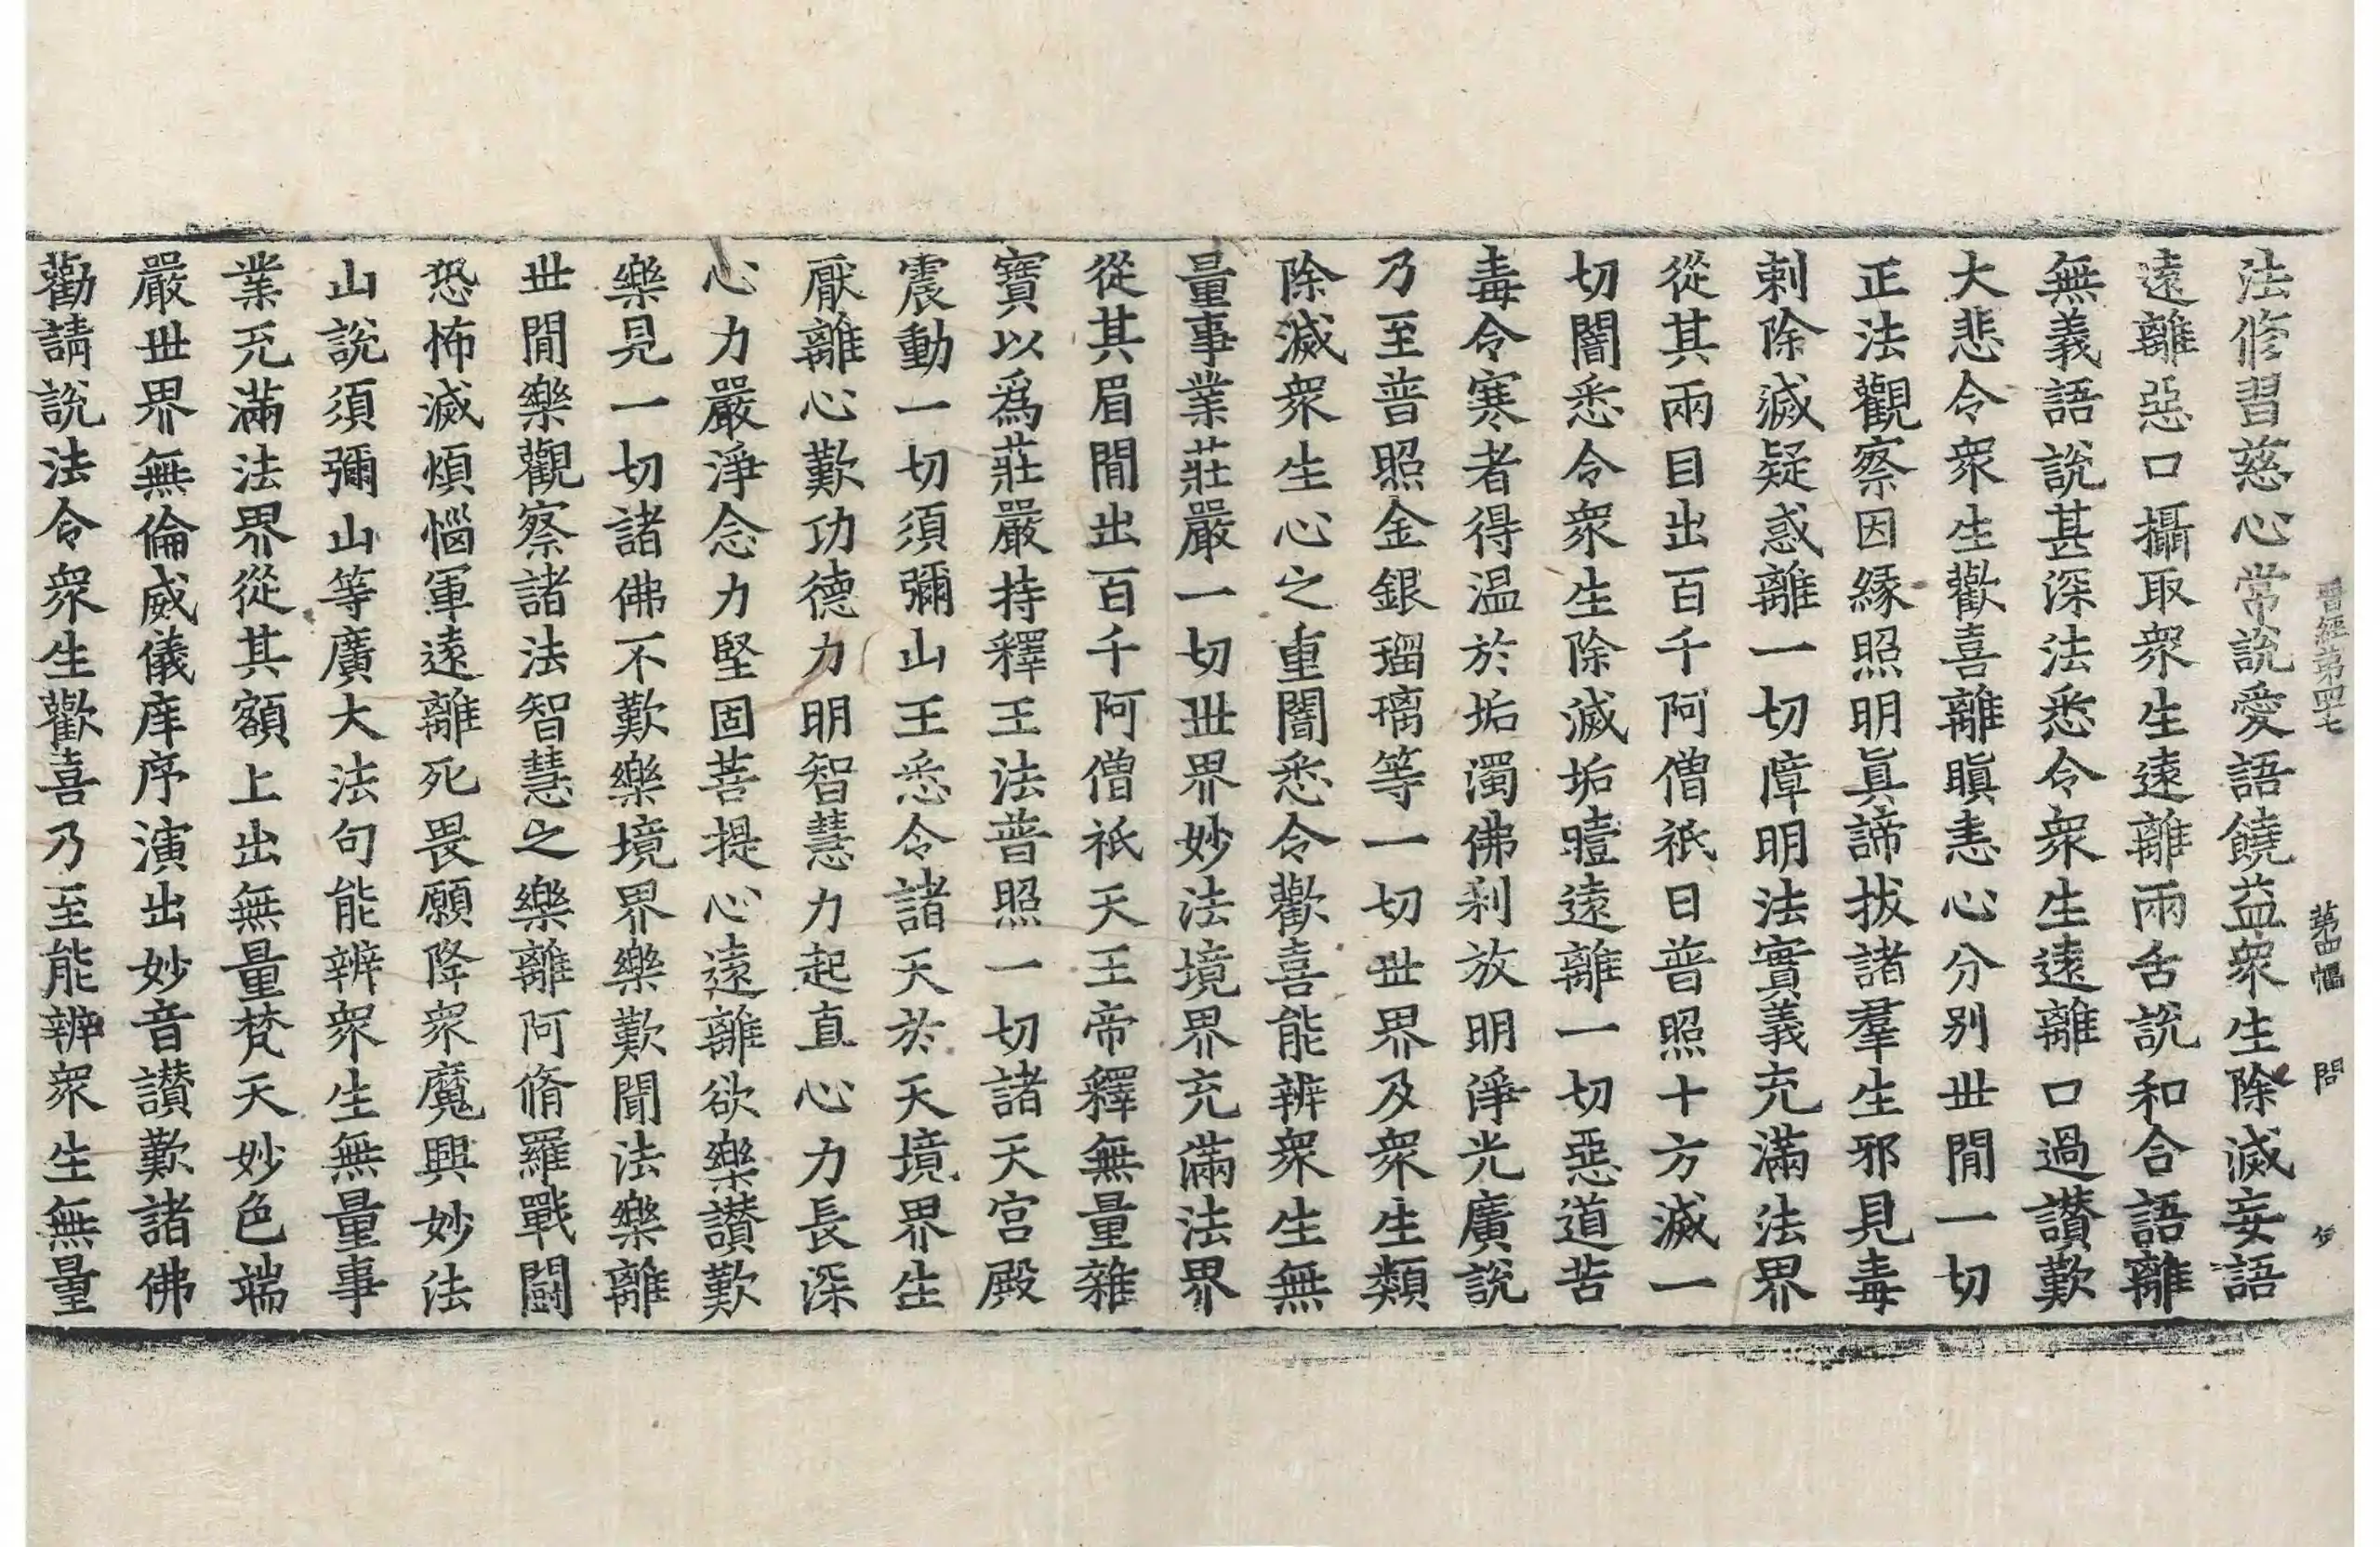 晉經第四七 第四幅 問
法修習慈心常說愛語饒益衆生除滅妄語
遠離惡口攝取衆生遠離兩舌說和合語離
無義語說甚深法悉令衆生遠離口過讃歎
大悲令衆生歡喜離瞋恚心分別丗閒一切
正法觀察因縁照明眞諦拔諸羣生邪見毒
刺除滅疑惑離一切障明法實義充滿法界
從其兩目出百千阿僧祇日普照十方滅一
切闇悉令衆生除滅垢曀遠離一切惡道苦
毒令寒者得温於垢濁佛刹放明淨光廣說
乃至普照金銀瑠璃等一切丗界及衆生類
除滅衆生心之重闇悉令歡喜能辨衆生無
量事業莊嚴一切丗界妙法境界充滿法界
從其眉閒出百千阿僧祇天王帝釋無量雜
寶以爲莊嚴持釋王法普照一切諸天宮殿
震動一切須彌山王悉令諸天於天境界生
厭離心歎功德力明智慧力起直心力長深
心力嚴淨念力堅固菩提心遠離欲樂讃歎
樂見一切諸佛不歎樂境界樂歎聞法樂離
丗閒樂觀察諸法智慧之樂離阿脩羅戰鬪
恐怖滅煩惱軍遠離死畏願降衆魔興妙法
山說須彌山等廣大法句能辨衆生無量事
業充滿法界從其額上出無量梵天妙色端
嚴丗界無倫威儀庠序演出妙音讃歎諸佛
勸請說法令衆生歡喜乃至能辨衆生無量